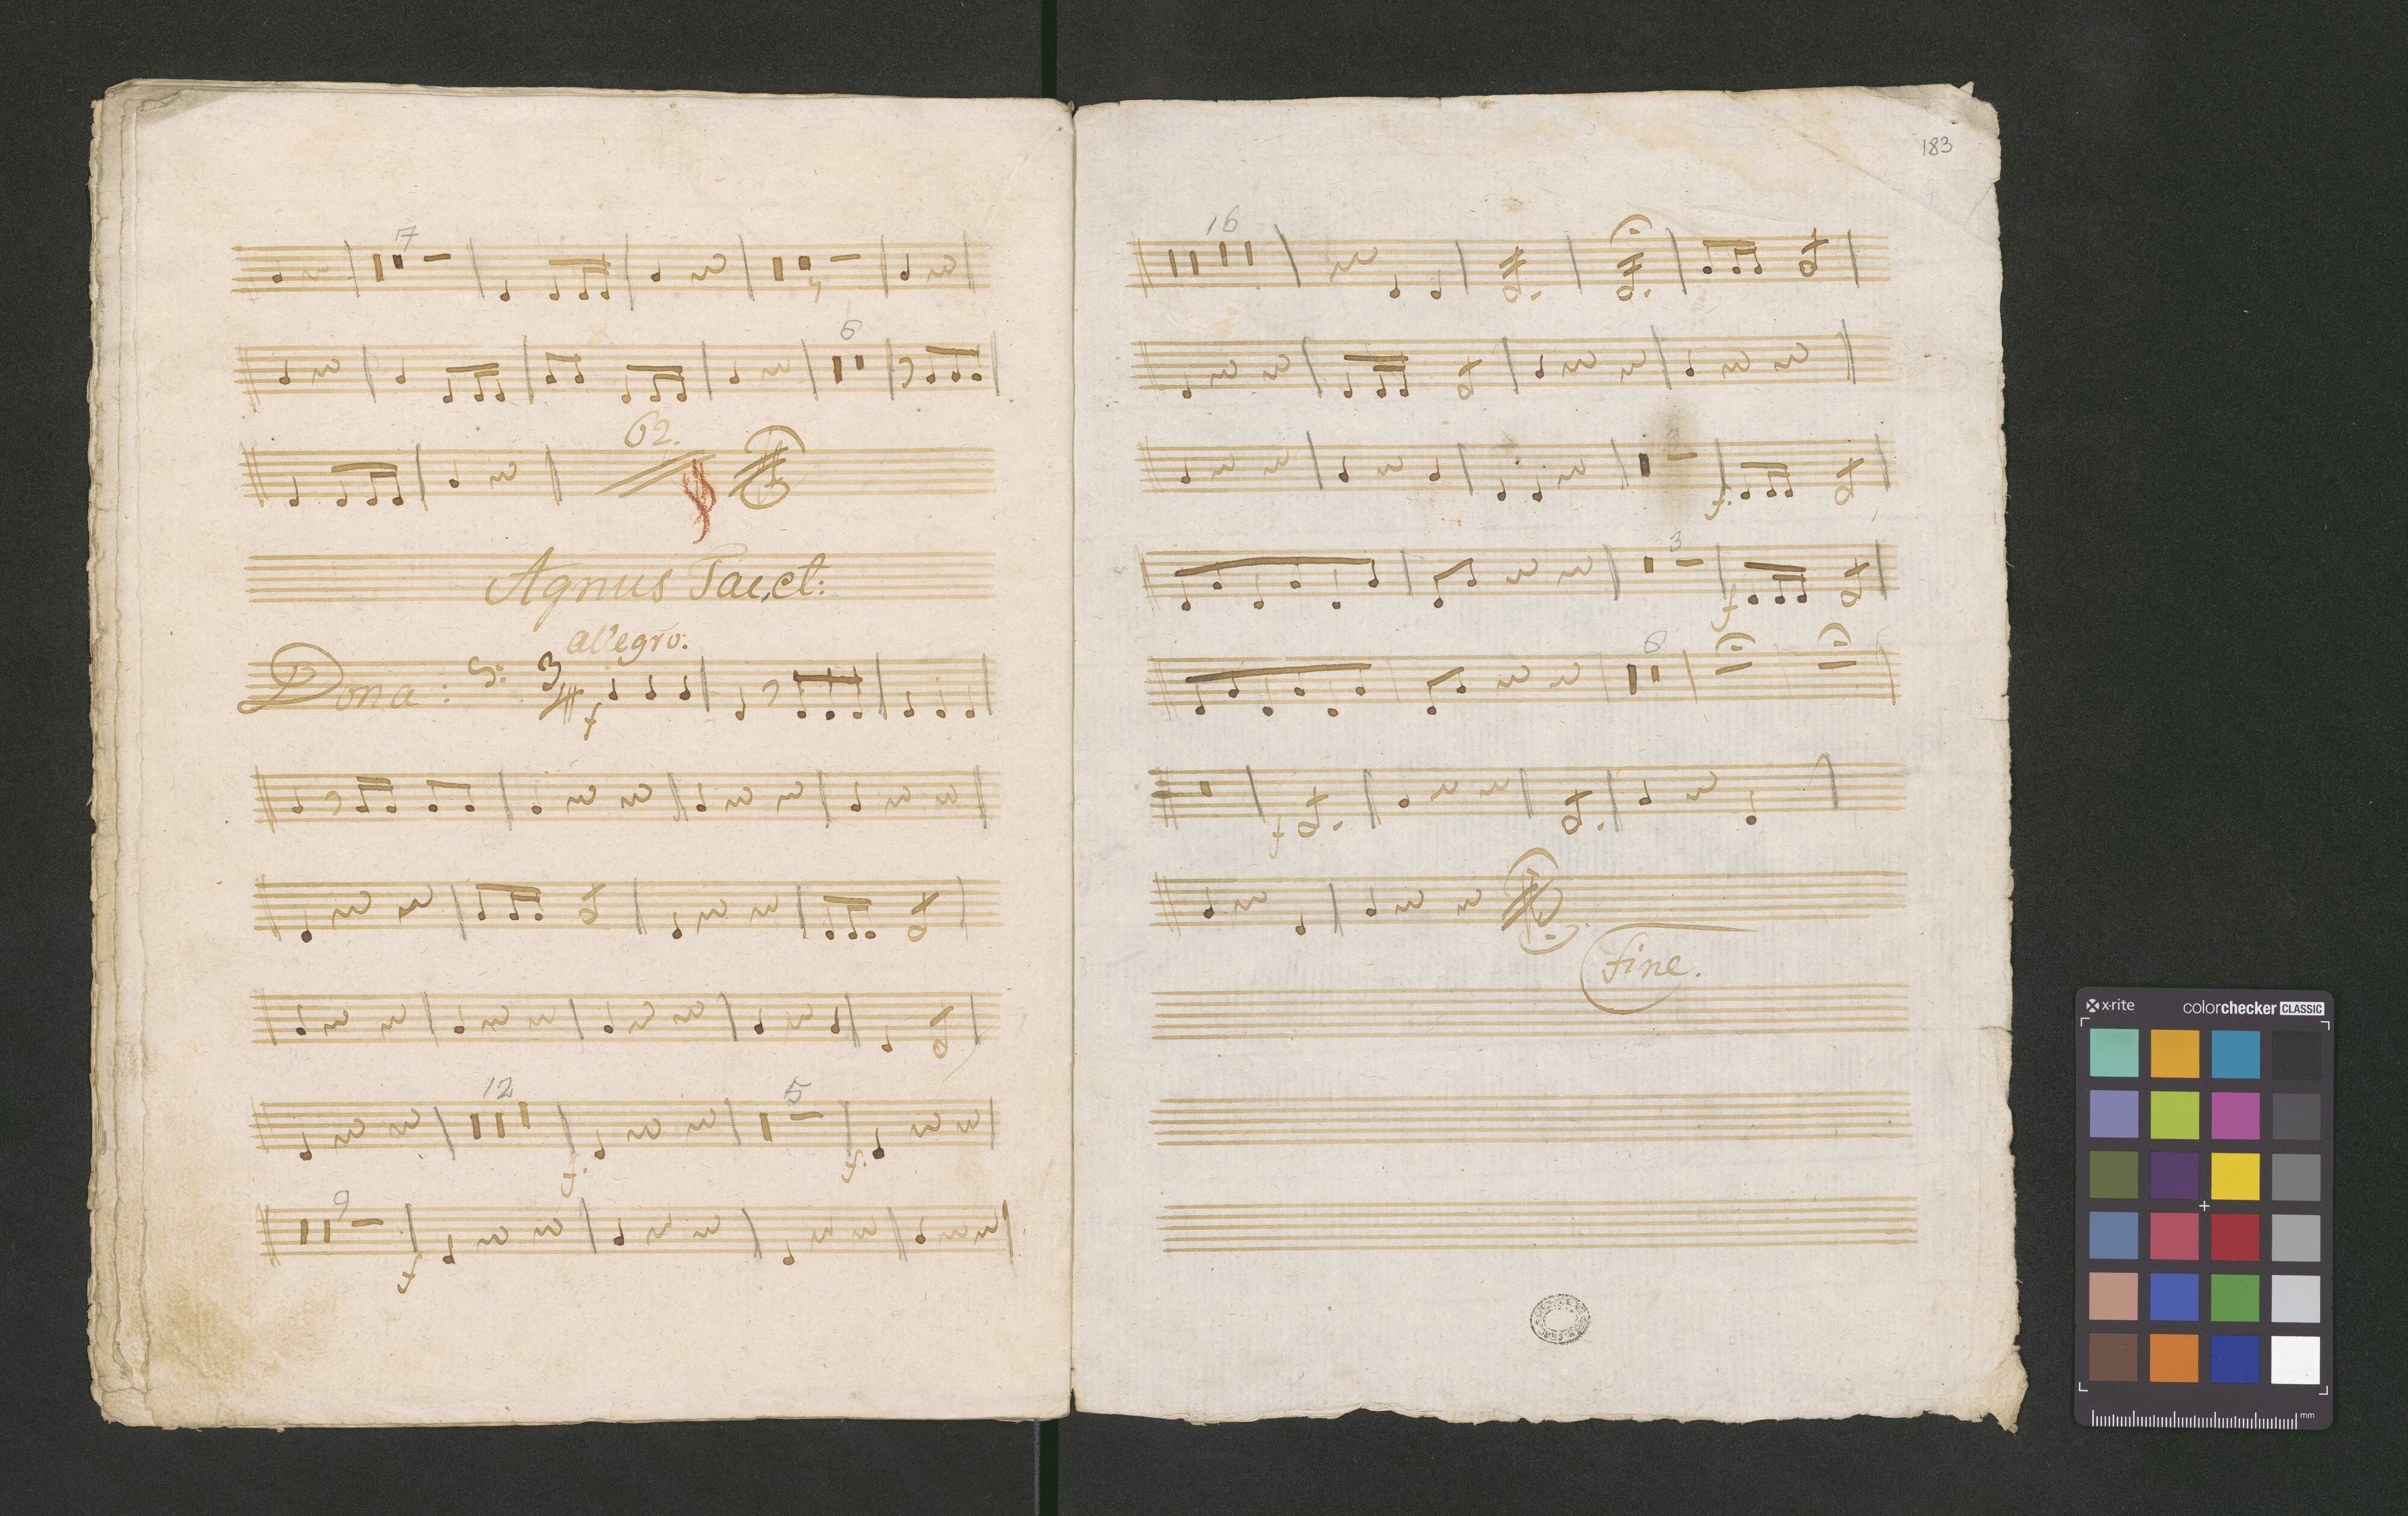 7
6
62.
Agnus Tacet:
allegro.
Dona: 3
f
12
5
f. f.
9
f
183
16
f.
3
f
6
f
Fine.
x-rite colorchecker CLASSIC
mm